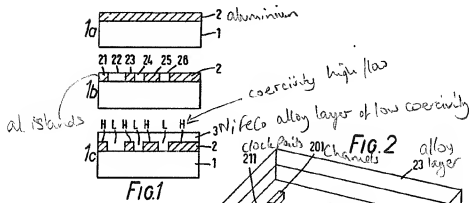 2 aluminium
1a
1
21 22 23 24 25 26
2
1b
al islands
coercivity high/low
H L H L H L H
3 NiFeCo alloy layer of low coercivity
2
1c
1
FIG.1
FIG.2
clock pairs
211
201 channels
alloy
23 layer